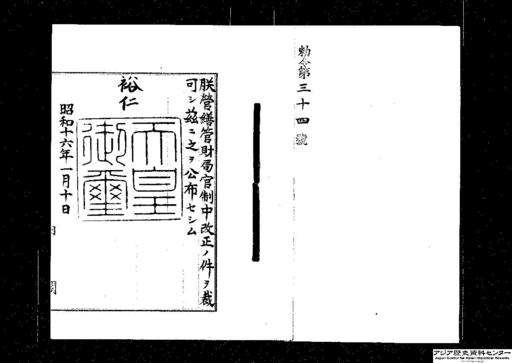 勅令第三十四號
朕營繕管財局官制中改正ノ件ヲ裁
可シ茲ニ之ヲ公布セシム
裕仁
天皇
御璽
昭和十六年一月十日
内閣
アジア歴史資料センター
Japan Center for Asian Historical Records